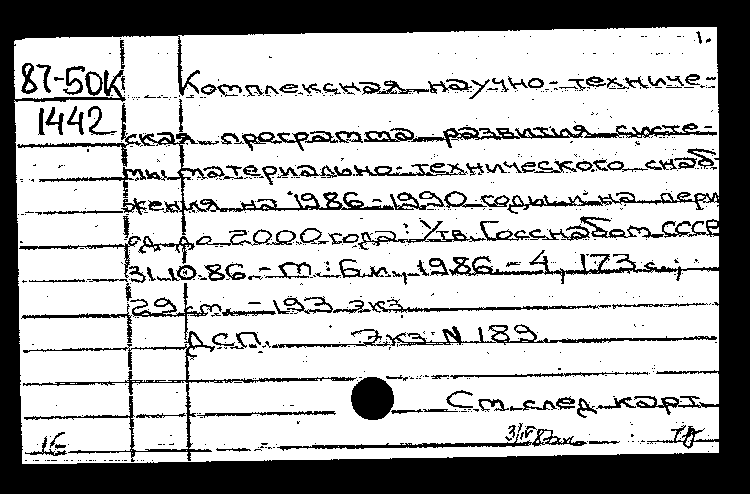 1.
87-50К Комплексная научно-техниче-
1442
ская программа развития систе-
мы материально-технического снаб-
жения на 1986-1990 годы и на пери
од до 2000 года: Утв. Госснабом СССР
31.10.86. - М.: Б.и., 1986. - 4, 173 с.;
29 см. - 193 экз.
ДСП. Экз. N 189.
См. след. карт.
1Б